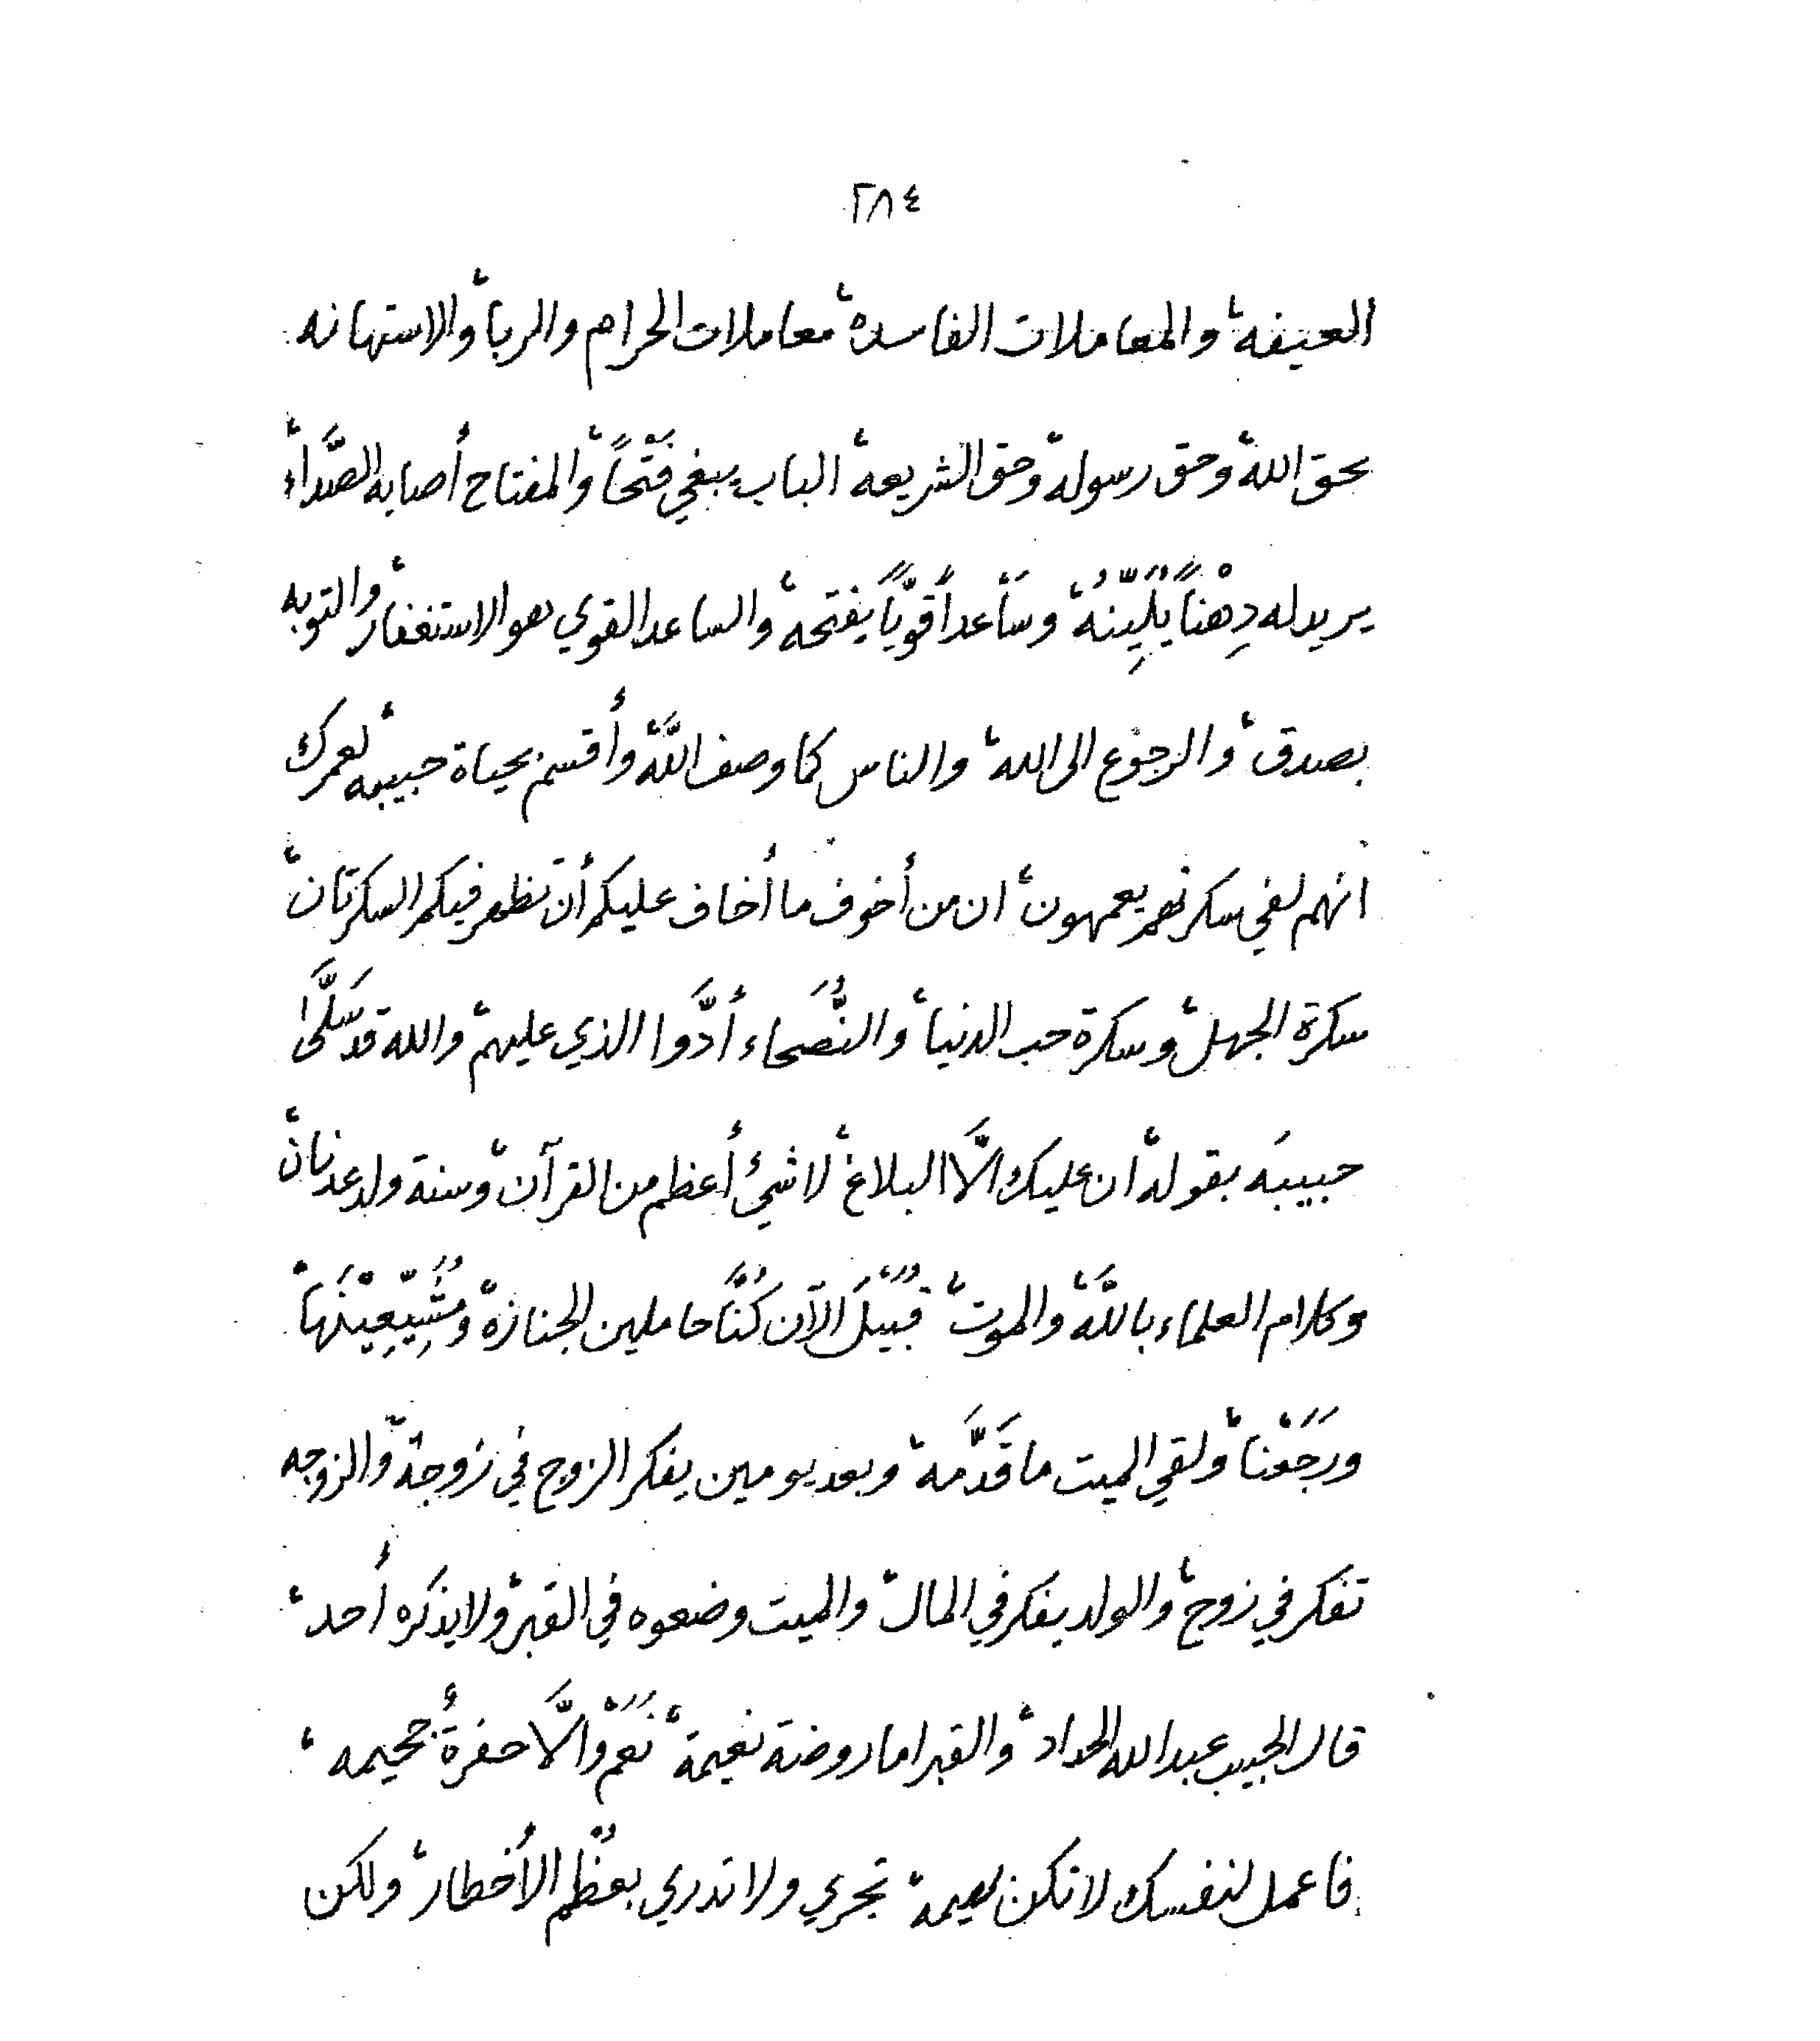 ٢٨٤
العيفة، والمعاملات الفاسده، معاملات الحرام والربا، والاستهانه
بحق الله، وحق رسوله، وحق الشريعه، الباب يبغي فَتْحاً، والمفتاح أصابه الصَّداء،
يريد له دِهْناً يُلَيِّنُهُ، وسَاعداً قويّاً يفتحه، والساعد القوي هو الاستغفار، والتوبه
بصدق، والرجوع الى الله، والناس كما وصف اللَّه، وأقسم بحياة حبيبه، لعمرك
انهم لفي سكرتهم يعمهون، ان من أخوف ما أخاف عليكم أن تظهر فيكم السكرتان،
سكرة الجهل، وسكرة حب الدنيا، والنُّصَحاء أدَّوا الذي عليهم، والله قد سَلَّىٰ
حبيبَه بقوله، ان عليك الَّا البلاغ، لا شيْء أعظم من القرآن، وسنة ولد عدنان،
وكلام العلماء باللَّه، والموت، قُبَيْلَ الآن كُنَّا حاملين الجنازه، ومُشَيِّعِيْنَهَا،
ورَجَعْنا، ولقي الميت ما قَدَّمه، وبعد يومين يفكر الزوج في زوجة، والزوجه
تفكر في زوج، والولد يفكر في المال، والميت وضعوه في القبر، ولا يذكره أحد،
قال الحبيب عبدالله الحداد، والقبر اما روضة نعيمة، نَعَمْ، والَّا حفرةٌ جحيمه،
فاعمل لنفسك لا تكن بهيمه، تجري ولا تدري بعُظْم الأخطار، ولكن